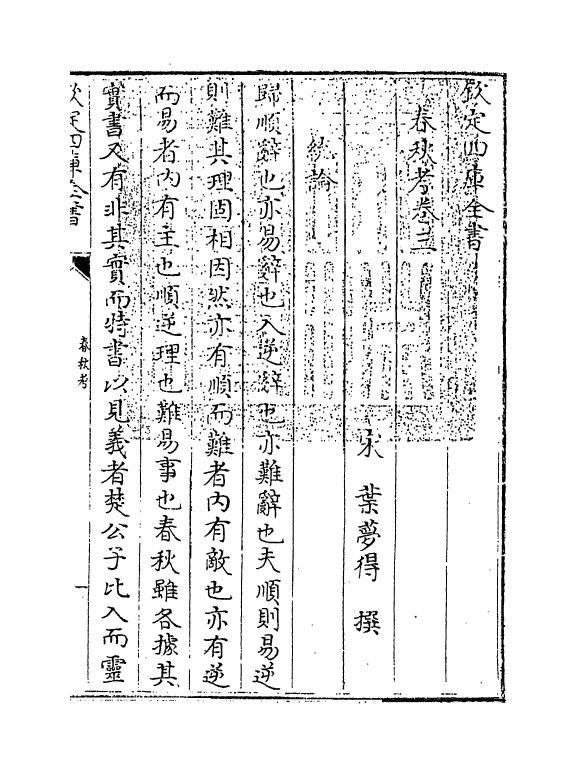 欽定四庫全書
春秋考卷三
宋　葉夢得　撰
統論
歸順辭也亦易辭也入逆辭也亦難辭也夫順則易逆
則難其理固相因然亦有順而難者内有敵也亦有逆
而易者内有主也順逆理也難易事也春秋雖各據其
實書又有非其實而特書以見義者楚公子比入而靈
欽定四庫全書
春秋考
一